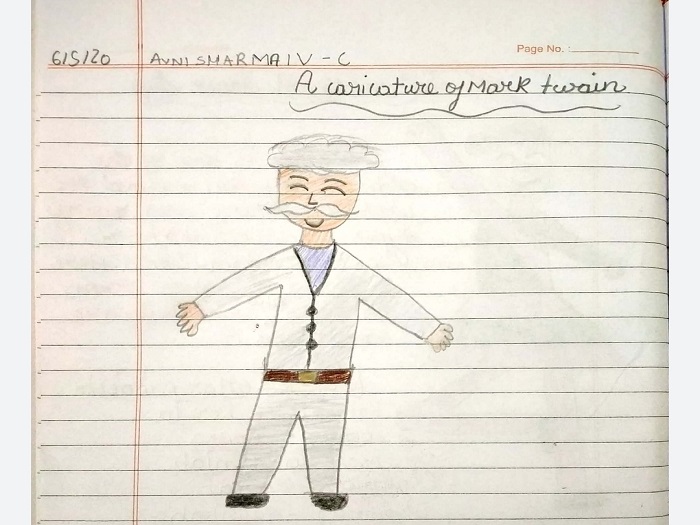 Page No. :
6/5/20 AVNI SHARMA IV - C
A caricature of Mark twain